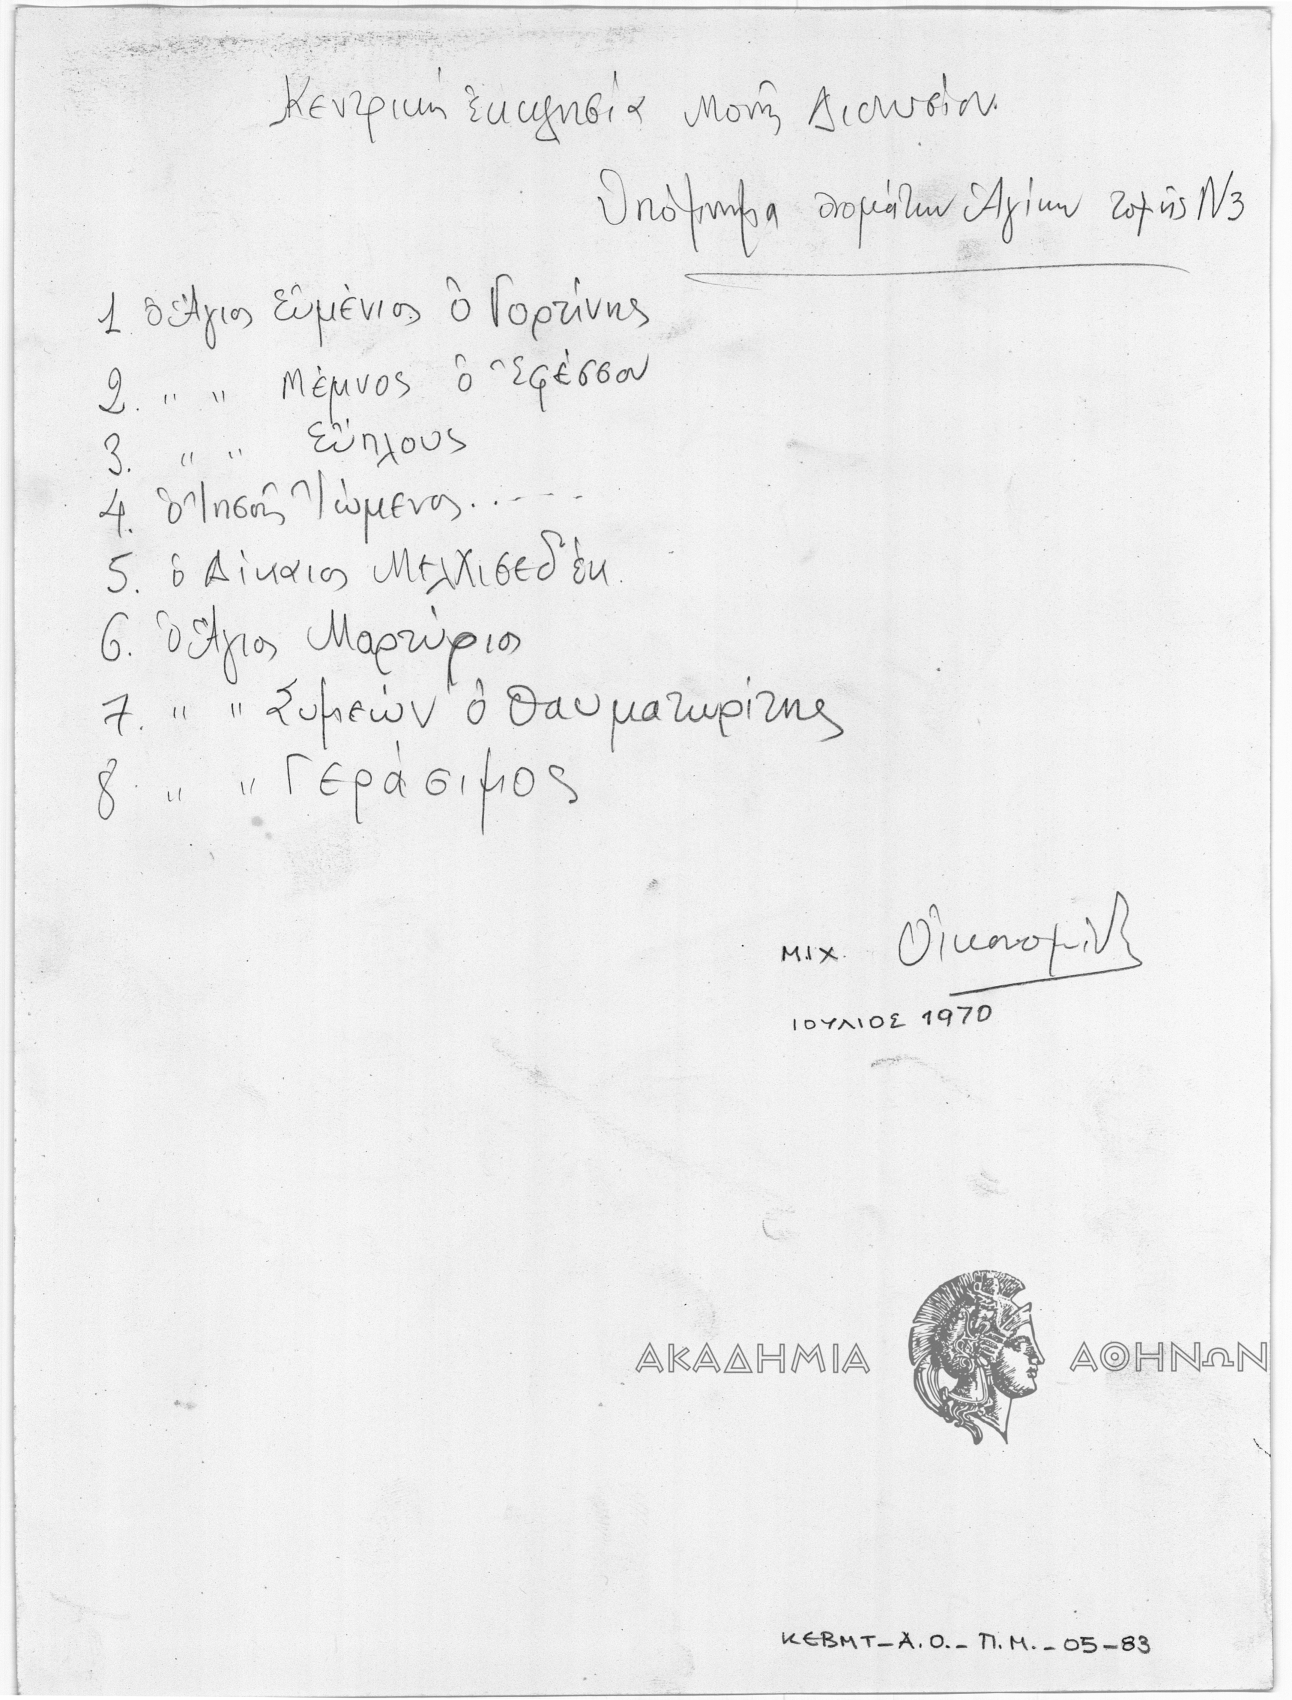 Κεντρική Ἐκκλησία Μονῆς Διονυσίου.
Ὑπόμνημα ὀνομάτων Ἁγίων τομῆς Ν3
1. ὁ Ἅγιος Εὐμένιος ὁ Γορτύνης
2. " " Μέμνος ὁ Ἐφέσσου
3. " " Εὔπλους
4. ὁ Ἰησοῦς Ἰώμενος.
5. ὁ Δίκαιος Μελχισεδέκ.
6. ὁ Ἅγιος Μαρτύριος
7. " " Συμεών ὁ Θαυματωρίτης
8 " " Γεράσιμος
ΜΙΧ. Οἰκονομίδης
ΙΟΥΛΙΟΣ 1970
ΑΚΑΔΗΜΙΑ ΑΘΗΝΩΝ
ΚΕΒΜΤ-Α.Ο.-Π.Μ.-05-83